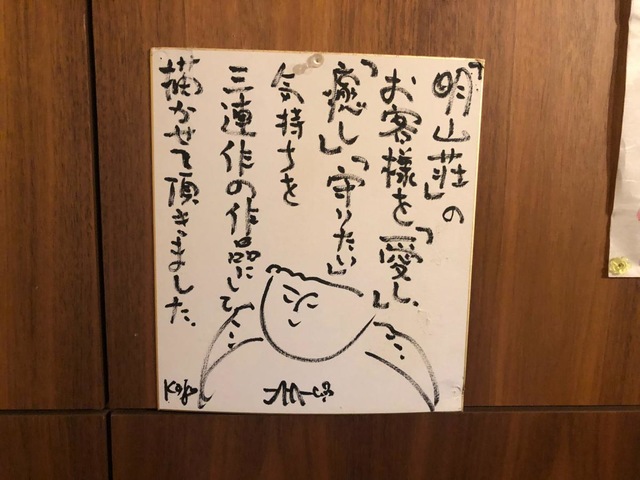 「明山荘」の
お客様を「愛し」
「癒し」「守りたい」
気持ちを
三連作の作品にして
描かせて頂きました。